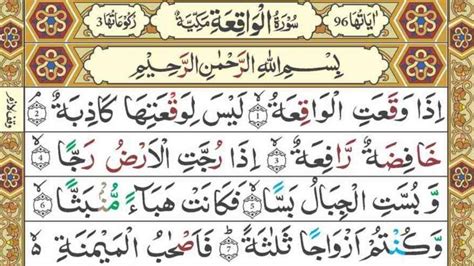 اٰيَاتُهَا 96 سُوْرَةُ الْوَاقِعَةِ مَكِّيَّةٌ رُكُوْعَاتُهَا 3
بِسْمِ اللّٰهِ الرَّحْمٰنِ الرَّحِيْمِ
اِذَا وَقَعَتِ الْوَاقِعَةُ ۙ 1 لَيْسَ لِوَقْعَتِهَا كَاذِبَةٌ ۘ 2
خَافِضَةٌ رَّافِعَةٌ ۙ 3 اِذَا رُجَّتِ الْاَرْضُ رَجًّا ۙ 4
وَّ بُسَّتِ الْجِبَالُ بَسًّا ۙ 5 فَكَانَتْ هَبَآءً مُّنْۢبَثًّا ۙ 6
وَّ كُنْتُمْ اَزْوَاجًا ثَلٰثَةً ؕ 7 فَاَصْحٰبُ الْمَيْمَنَةِ ۙ۬